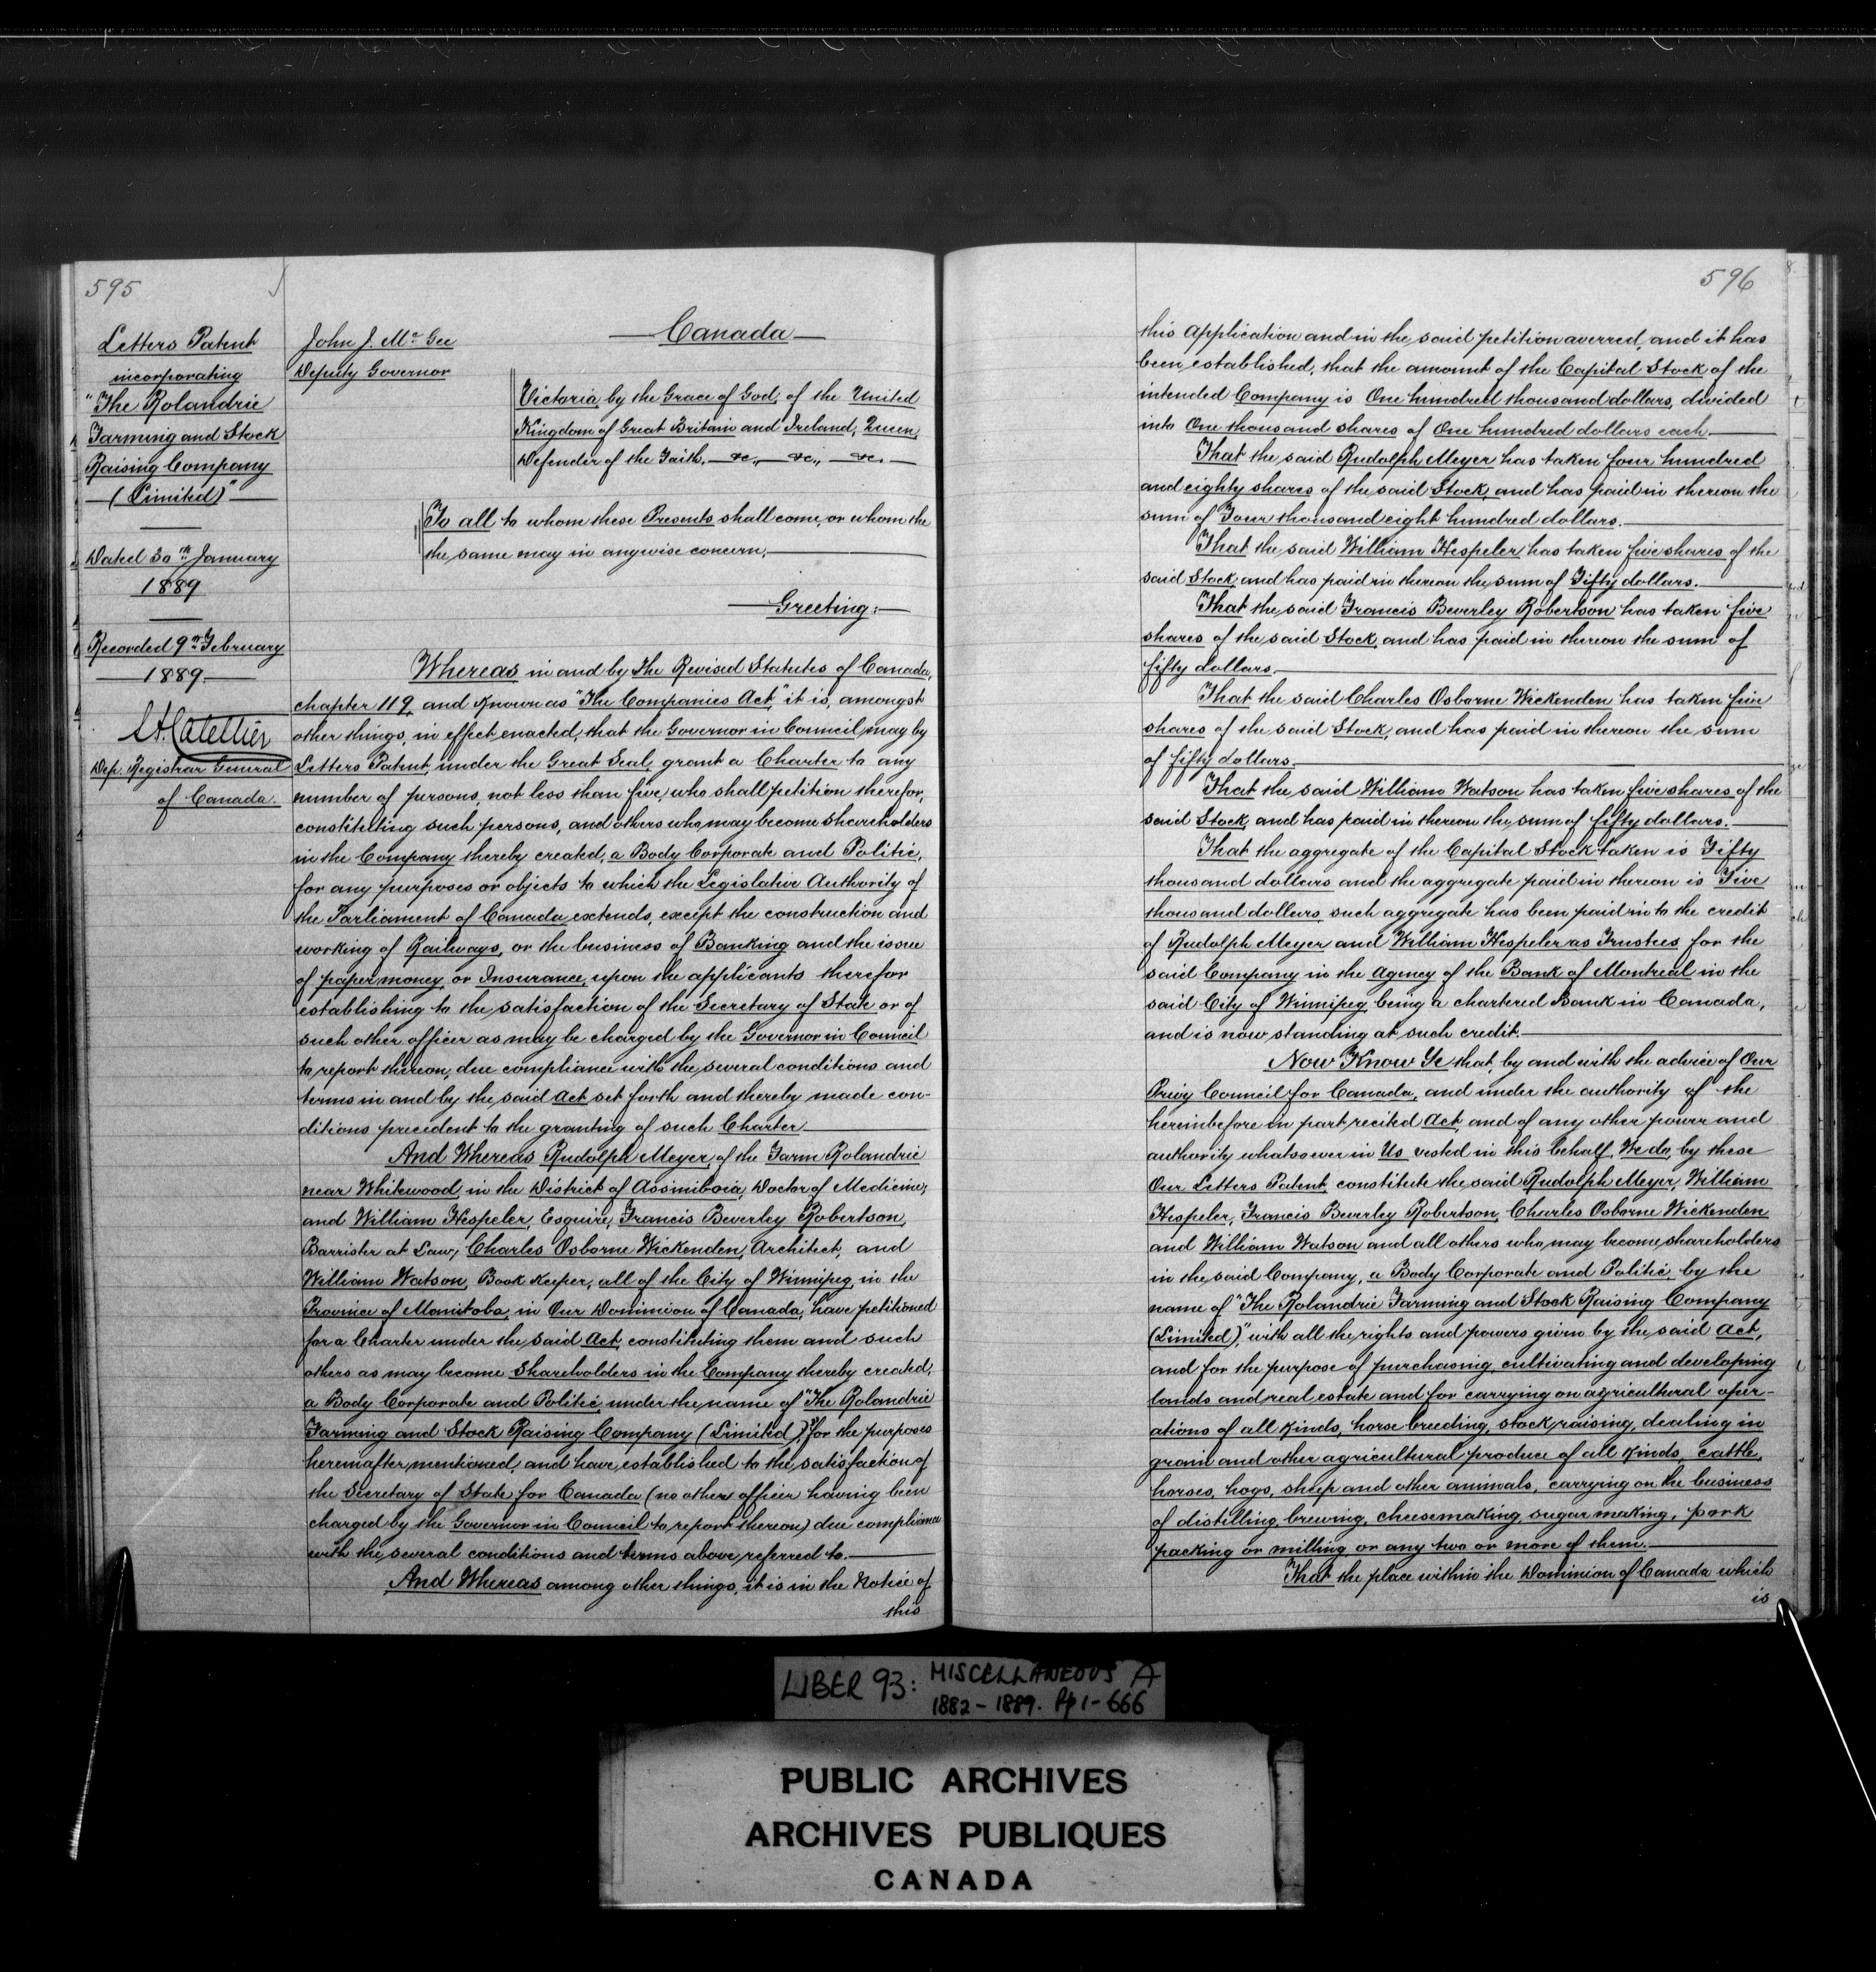 595
Letters Patent
incorporating
"The Rolandrie
Farming and Stock
Raising Company
(Limited)"
Dated 30th January
1889
Recorded 9th February
1889.
Dep. Registrar General
of Canada.
John J. McGee
Deputy Governor
Canada
Victoria, by the Grace of God, of the United
Kingdom of Great Britain and Ireland, Queen,
Defender of the Faith, &c., &c., &c.
To all to whom these Presents shall come, or whom the
the same may in anywise concern,
Greeting:
Whereas in and by the Revised Statutes of Canada,
chapter 119, and known as "The Companies Act," it is, amongst
other things, in effect enacted, that the Governor in Council, may by
Letters Patent, under the Great Seal, grant a Charter to any
number of persons, not less than five, who shall petition therefor,
constituting such persons, and others who may become shareholders
in the Company thereby created, a Body Corporate and Politic,
for any purposes or objects to which the Legislative Authority of
the Parliament of Canada extends, except the construction and
working of Railways, or the business of Banking and the issue
of paper money, or Insurance, upon the applicants therefor
establishing to the satisfaction of the Secretary of State or of
such other officer as may be charged by the Governor in Council
to report thereon, due compliance with the several conditions and
terms in and by the said Act set forth and thereby made con-
ditions precedent to the granting of such Charter
And Whereas Rudolph Meyer, of the Farm Rolandrie
near Whitewood, in the District of Assiniboia, Doctor of Medicine,
and William Hespeler, Esquire, Francis Beverley Robertson,
Barrister at Law, Charles Osborne Wickenden, Architect, and
William Watson, Book Keeper, all of the City of Winnipeg, in the
Province of Manitoba, in Our Dominion of Canada, have petitioned
for a Charter under the said Act, constituting them and such
others as may become Shareholders in the Company thereby created,
a Body Corporate and Politic, under the name of "The Rolandrie
Farming and Stock Raising Company (Limited)" for the purposes
hereinafter mentioned, and have established to the satisfaction of
the Secretary of State for Canada (no other officer having been
charged by the Governor in Council to report thereon) due compliance
with the several conditions and terms above referred to.
And Whereas among other things, it is in the Notice of
this
596
this Application and in the said petition averred, and it has
been established, that the amount of the Capital Stock of the
intended Company is One hundred thousand dollars, divided
into One thousand shares of One hundred dollars each.
That the said Rudolph Meyer has taken four hundred
and eighty shares of the said Stock, and has paid in thereon the
sum of Four thousand eight hundred dollars.
That the said William Hespeler has taken five shares of the
said Stock, and has paid in thereon the sum of Fifty dollars.
That the said Francis Beverley Robertson has taken five
shares of the said Stock, and has paid in thereon the sum of
fifty dollars.
That the said Charles Osborne Wickenden has taken five
shares of the said Stock, and has paid in thereon the sum
of fifty dollars.
That the said William Watson has taken five shares of the
said Stock, and has paid in thereon the sum of fifty dollars.
That the aggregate of the Capital Stock taken is Fifty
thousand dollars and the aggregate paid in thereon is Five
thousand dollars, such aggregate has been paid in to the credit
of Rudolph Meyer and William Hespeler as Trustees for the
said Company in the Agency of the Bank of Montreal in the
said City of Winnipeg, being a chartered Bank in Canada,
and is now standing at such credit.
Now Know Ye that, by and with the advice of Our
Privy Council for Canada, and under the authority of the
hereinbefore in part recited Act, and of any other power and
authority whatsoever in Us vested in this behalf, We do, by these
Our Letters Patent, constitute the said Rudolph Meyer, William
Hespeler, Francis Beverley Robertson, Charles Osborne Wickenden
and William Watson and all others who may become shareholders
in the said Company, a Body Corporate and Politic, by the
name of "The Rolandrie Farming and Stock Raising Company
(Limited)," with all the rights and powers given by the said Act,
and for the purpose of purchasing, cultivating and developing
lands and real estate and for carrying on agricultural oper-
ations of all kinds, horse breeding, stock raising, dealing in
grain and other agricultural produce of all kinds, cattle,
horses, hogs, sheep and other animals, carrying on the business
of distilling, brewing, cheesemaking, sugar making, pork
packing or milling, or any two or more of them.
That the place within the Dominion of Canada which
is
LIBER 93: MISCELLANEOUS A
1882-1889. Pp 1-666
PUBLIC ARCHIVES
ARCHIVES PUBLIQUES
CANADA